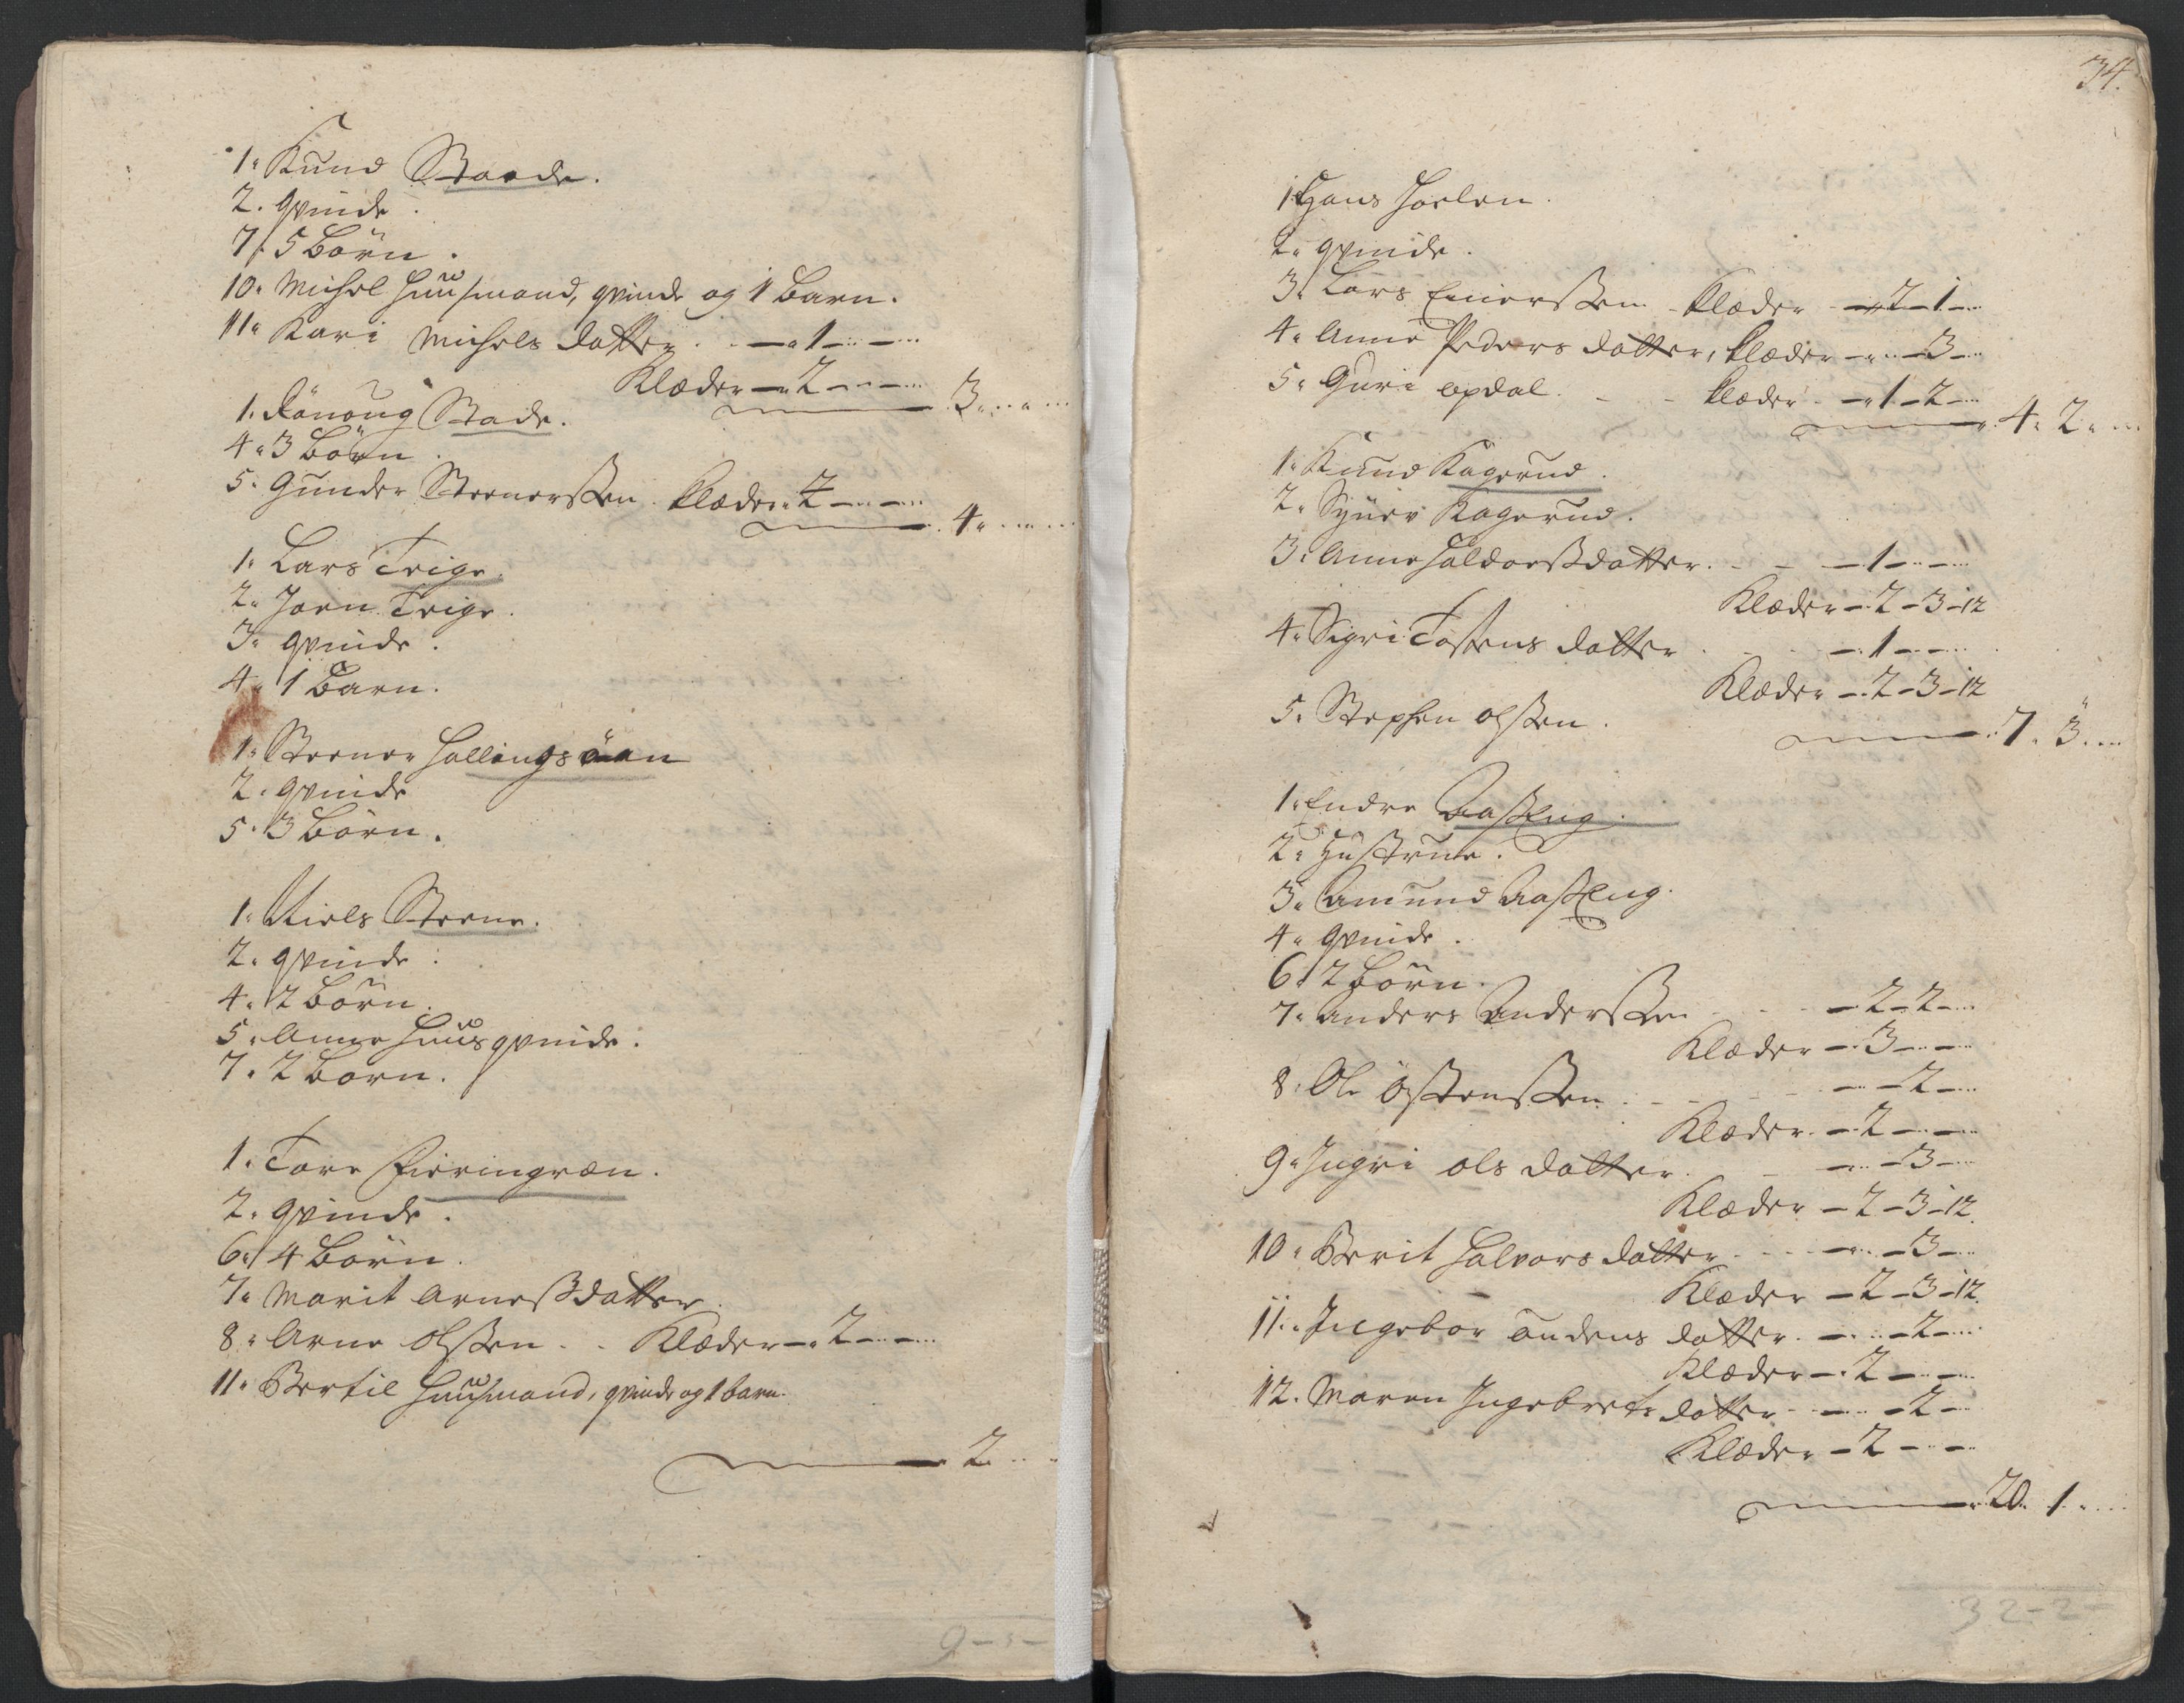 1. Knud Staade.
2. qvinde.
7. 5 Börn.
10. Michel Huusmand, qvinde og 1 Barn.
11. Kari Michels datter - 1 - -
Klæder - 2 - -
3.
1. Rönoug Stade.
4. 3 Börn.
5. Gunder Steenerssen Klæder 4 - -
4.
1. Lars Teige.
2. Joen Teige.
3. qvinde.
4. 1 Barn.
1. Steener Hallingsöen
2. qvinde
5. 3 Börn.
1. Niels Steene.
2. qvinde.
4. 2 Börn.
5. Anne Huusqvinde.
7. 2 Börn.
1. Tore
2. qvinde.
6. 4 Börn.
7. Marit Arnesdatter.
8. Arne Olssen - Klæder - 2 - -
11. Bertil Huusmand, qvinde og 1 barn.
2
9 - -
34.
1. Hans Hoelen.
2. qvinde.
3. Lars Klæder - 2 - 1 -
4. Anne Peders datter, Klæder - - 3 -
5. Guri opdal. - - Klæder - 1 - 2 -
4. 2.
1. Knud Kagerud.
2. Kagerud.
3. Anne Haldorsdatter. - - 1 - -
Klæder - 2 - 3 - 12
4. Sigri Tostens datter - 1 - -
Klæder - 2 - 3 - 12
5. Stephen olssen.
7. 3.
1. Endre Aasseng.
2. Hustrue.
3. Amund Aasseng.
4. qvinde.
6. 2 börn.
7. Anders Anderssen - - 2 - 2 -
Klæder - 3 - -
8. Ole Östenssen - - - 2 -
Klæder - 2 - -
9. Ingri ols datter. - - - 3 -
Klæder - 2 - 3 - 12.
10. Berit Halvors datter - - - 3 -
Klæder - 2 - 3 - 12.
11. Ingebor Audens datter. - - 2 -
Klæder - 2 - -
12. Maren Ingebrets datter - - - 2 -
Klæder - 2 - -
20. 1.
32 - 2 -